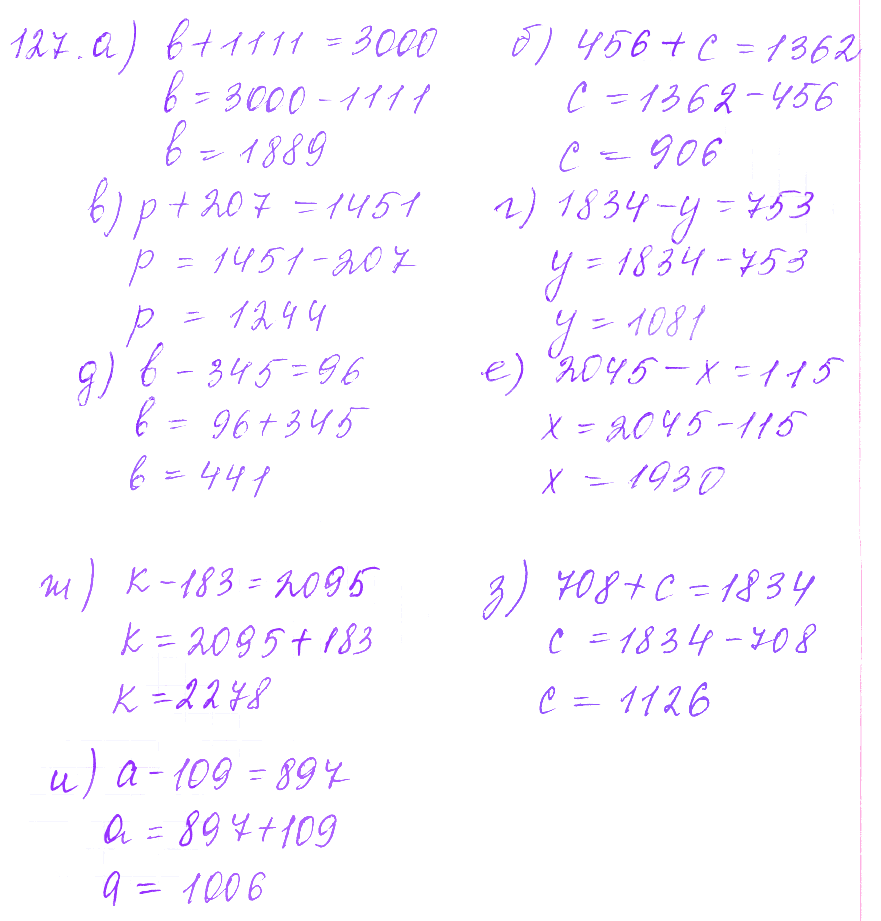 127. а) в + 1111 = 3000
в = 3000 - 1111
в = 1889
б) 456 + с = 1362
с = 1362 - 456
с = 906
в) р + 207 = 1451
р = 1451 - 207
р = 1244
г) 1834 - у = 753
у = 1834 - 753
у = 1081
д) в - 345 = 96
в = 96 + 345
в = 441
е) 2045 - х = 115
х = 2045 - 115
х = 1930
ж) к - 183 = 2095
к = 2095 + 183
к = 2278
з) 708 + с = 1834
с = 1834 - 708
с = 1126
и) а - 109 = 897
а = 897 + 109
а = 1006